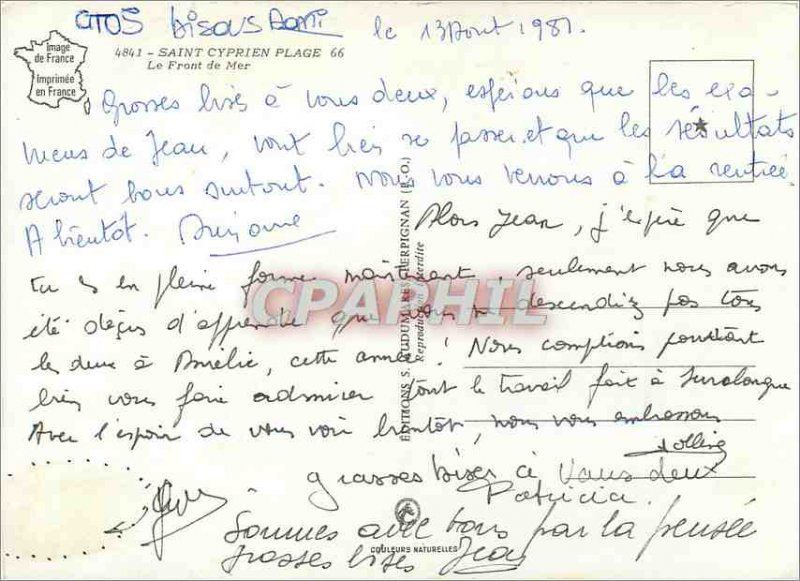 GROS bisous Domi le 13 Aout 1981.
Image de France
Imprimée en France
4841 - SAINT CYPRIEN PLAGE 66
Le Front de Mer
Grosses bises à vous deux, espérons que les exa-
mens de Jean, vont bien se passer et que les résultats
seront bons surtout. Nous vous verrons à la rentrée.
A bientôt. Suzanne
Alors Jean, j'espère que
tu es en pleine forme maintenant, seulement nous avons
été déçus d'apprendre que vous ne descendiez pas tous
les deux à Amélie, cette année! Nous comptions pourtant
bien vous faire admirer tout le travail fait à Serralongue
Avec l'espoir de vous voir bientôt, nous vous embrassons
grosses bises à vous deux
Patricia.
Sommes avec vous par la pensée
grosses bises Jean
EDITIONS S. PERPIGNAN (P.-O.)
Reproduction interdite
COULEURS NATURELLES
CPARPHIL